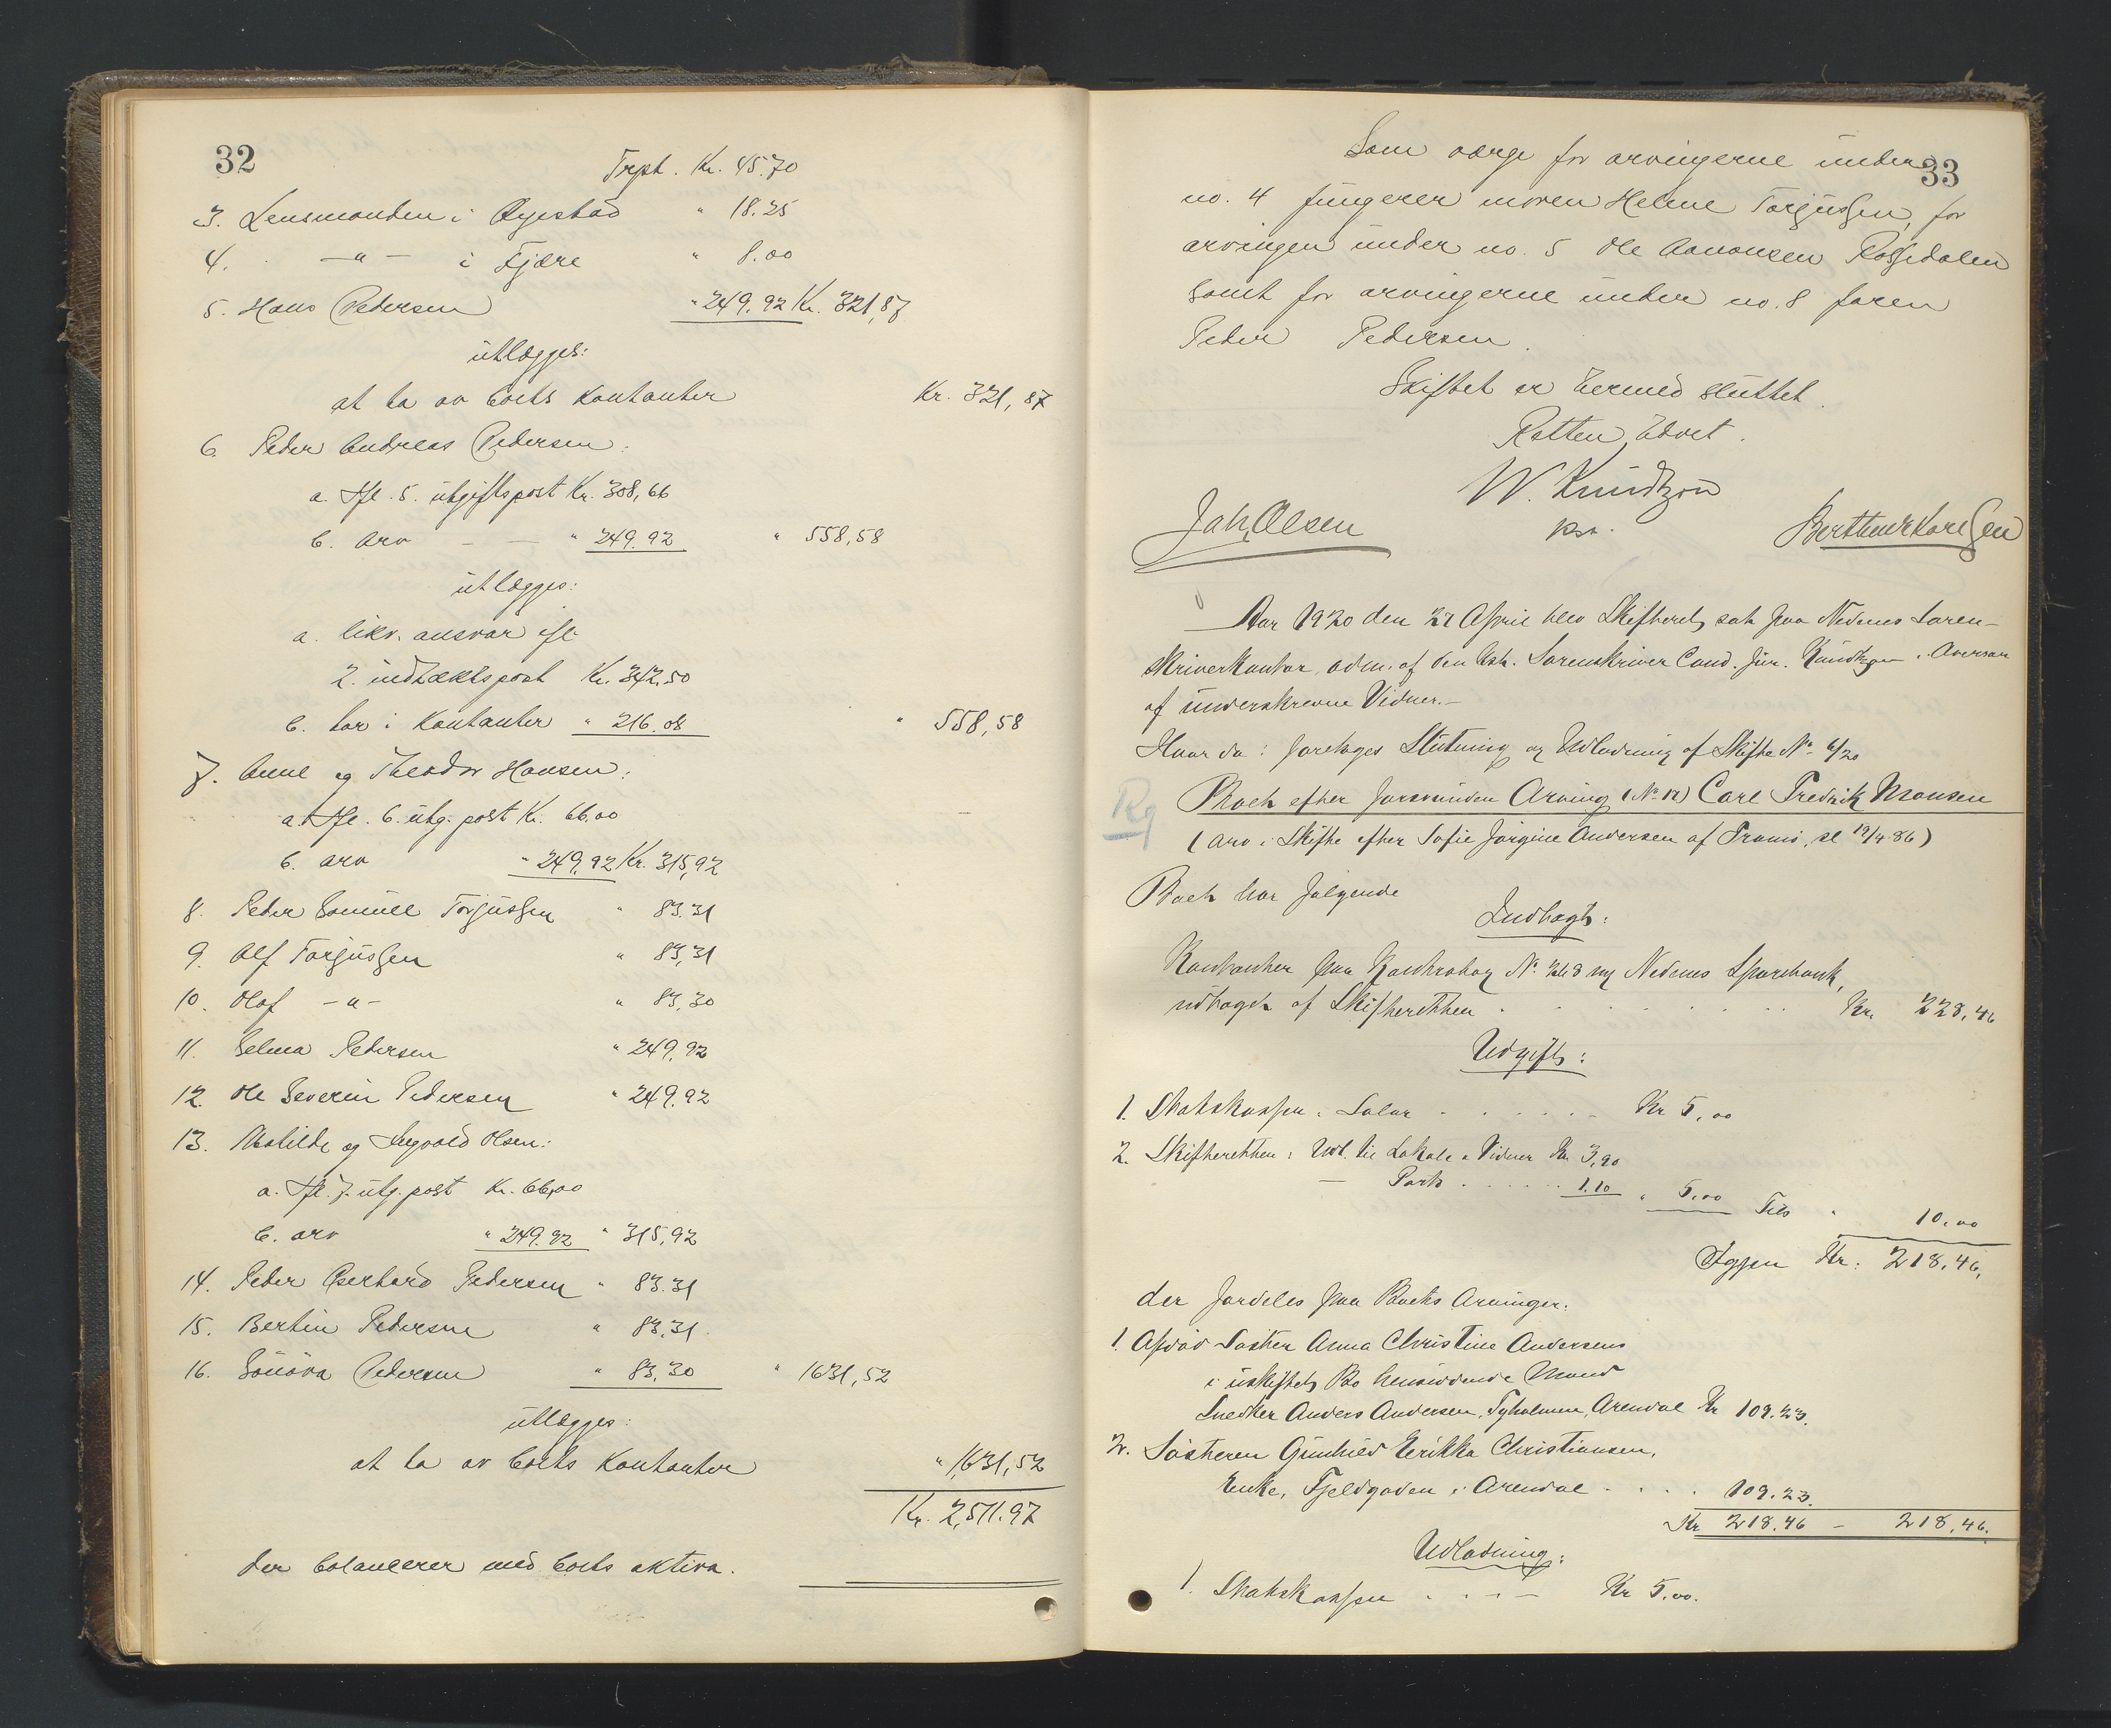 32
Trpt. Kr. 45.70
3. Lensmanden i Øyestad " 18.25
4. —"— i Fjære " 8.00
5. Hans Pedersen " 249.92 Kr. 321,87
utlægges:
at ta av boets kontanter Kr. 321,87
6. Peder Andreas Pedersen:
a. Ifl. 5. utgiftspost Kr. 308,66
b. Arv — — " 249.92 " 558,58
utlægges:
a. likv. ansvar ifl.
2. indtæktspost Kr. 342.50
b. tar i kontanter " 216.08 " 558,58
7. Anne og Theodor Hansen:
a. Ifl. 6. utg. post Kr. 66.00
b. arv " 249,92 Kr. 315,92
8. Peder Samuel Torjussen " 83.31
9. Alf Torjussen " 83,31
10. Olaf —"— " 83,30
11. Selma Pedersen " 249,92
12. Ole Severin Pedersen " 249.92
13. Matilde og Ingvald Olsen:
a. Ifl. 7. utg. post Kr. 66,00
b. arv " 249.92 " 315,92
14. Peder Gerhard Pedersen " 83.31
15. Bertin Pedersen " 83,31
16. Sønøva Pedersen " 83,30 " 1631,52
utlægges:
at ta av boets kontanter " 1,631,52
Kr. 2,511.97
der balancerer med boets aktiva.
33
Som værge for arvingerne under
no. 4 fungerer moren Helene Torjussen, for
arvingen under no. 5 Ole Aanonsen Rossedalen
samt for arvingerne under no. 8 faren
Peder Pedersen.
Skiftet er hermed sluttet.
Retten hævet.
W. Knudtzon
kst.
Joh. Olsen
Berthe Karlsen
Aar 1920 den 27 April blev Skifteret sat paa Nedenes Soren-
skriverkontor, adm. af den kst. Sorenskriver Cand. jur. Knudtzon i Overvær
af underskrevne Vidner.—
Hvor da: foretoges Slutning og Udlodning af Skifte No 6/20
Rg
Boet efter forsvunden Arving (No 12) Carl Fredrik Monsen
(Arv i Skifte efter Sofie Jørgine Andersen af Tromø, sl 19/4 86)
Boet har følgende
Indtægt:
Kontanter paa Kontrabog No 3618 Nedenes Sparebank,
udtaget af Skifteretten . . . . . . Kr. 228,46
Udgift:
1. Statskassen: Salær . . . . . Kr 5,00
2. Skifteretten: Udl. til Lokale & Vidner Kr. 3,90
— Porto . . . . . 1.10 " 5,00 Tils " 10,00
Igjen Kr: 218,46,
der fordeles paa Boets Arvinger:
1. Afdød Søster Anna Christine Andersens
i uskiftet Bo hensiddende Mand
Snedker Anders Andersen, Tyholmen, Arendal Kr 109.23.
2. Søsteren Gunhild Eerikka Christiansen,
Enke, Fjeldgaden i Arendal . . . . 109.23.
Kr 218,46 — 218,46.
Udlodning:
1. Statskassen . . . — Kr 5,00.